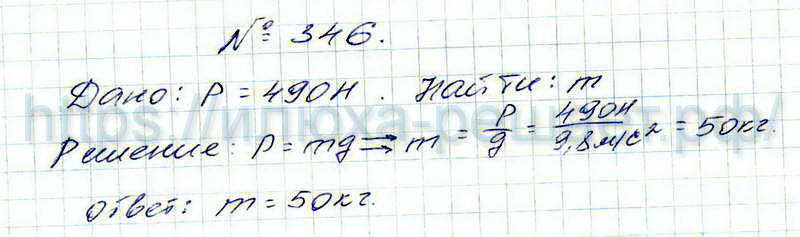 № 346.
Дано: P = 490Н. Найти: m
Решение: P = mg ⇒ m = P/g = 490Н/9,8м/с² = 50кг.
Ответ: m = 50кг.
https://илюха-решит.рф/